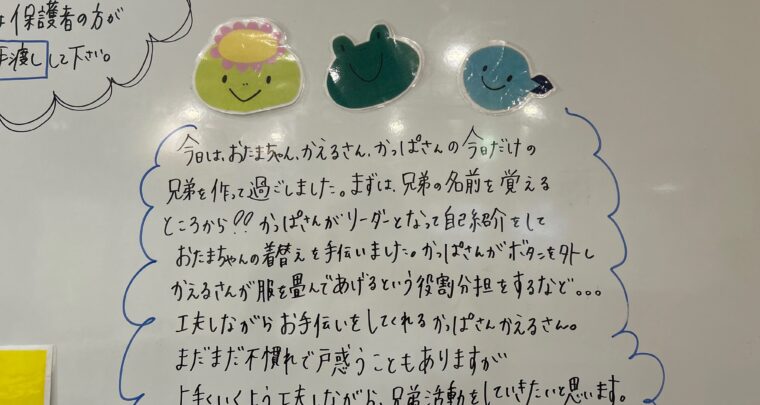 は保護者の方が
手渡しして下さい。
今日は、おたまちゃん、かえるさん、かっぱさんの今日だけの
兄弟を作って過ごしました。まずは、兄弟の名前を覚える
ところから!! かっぱさんがリーダーとなって自己紹介をして
おたまちゃんの着替えを手伝いました。かっぱさんがボタンを外し
かえるさんが服を畳んであげるという役割分担をするなど。。。
工夫しながらお手伝いをしてくれるかっぱさんかえるさん。
まだまだ不慣れで戸惑うこともありますが
上手くいくよう工夫しながら、兄弟活動をしていきたいと思います。